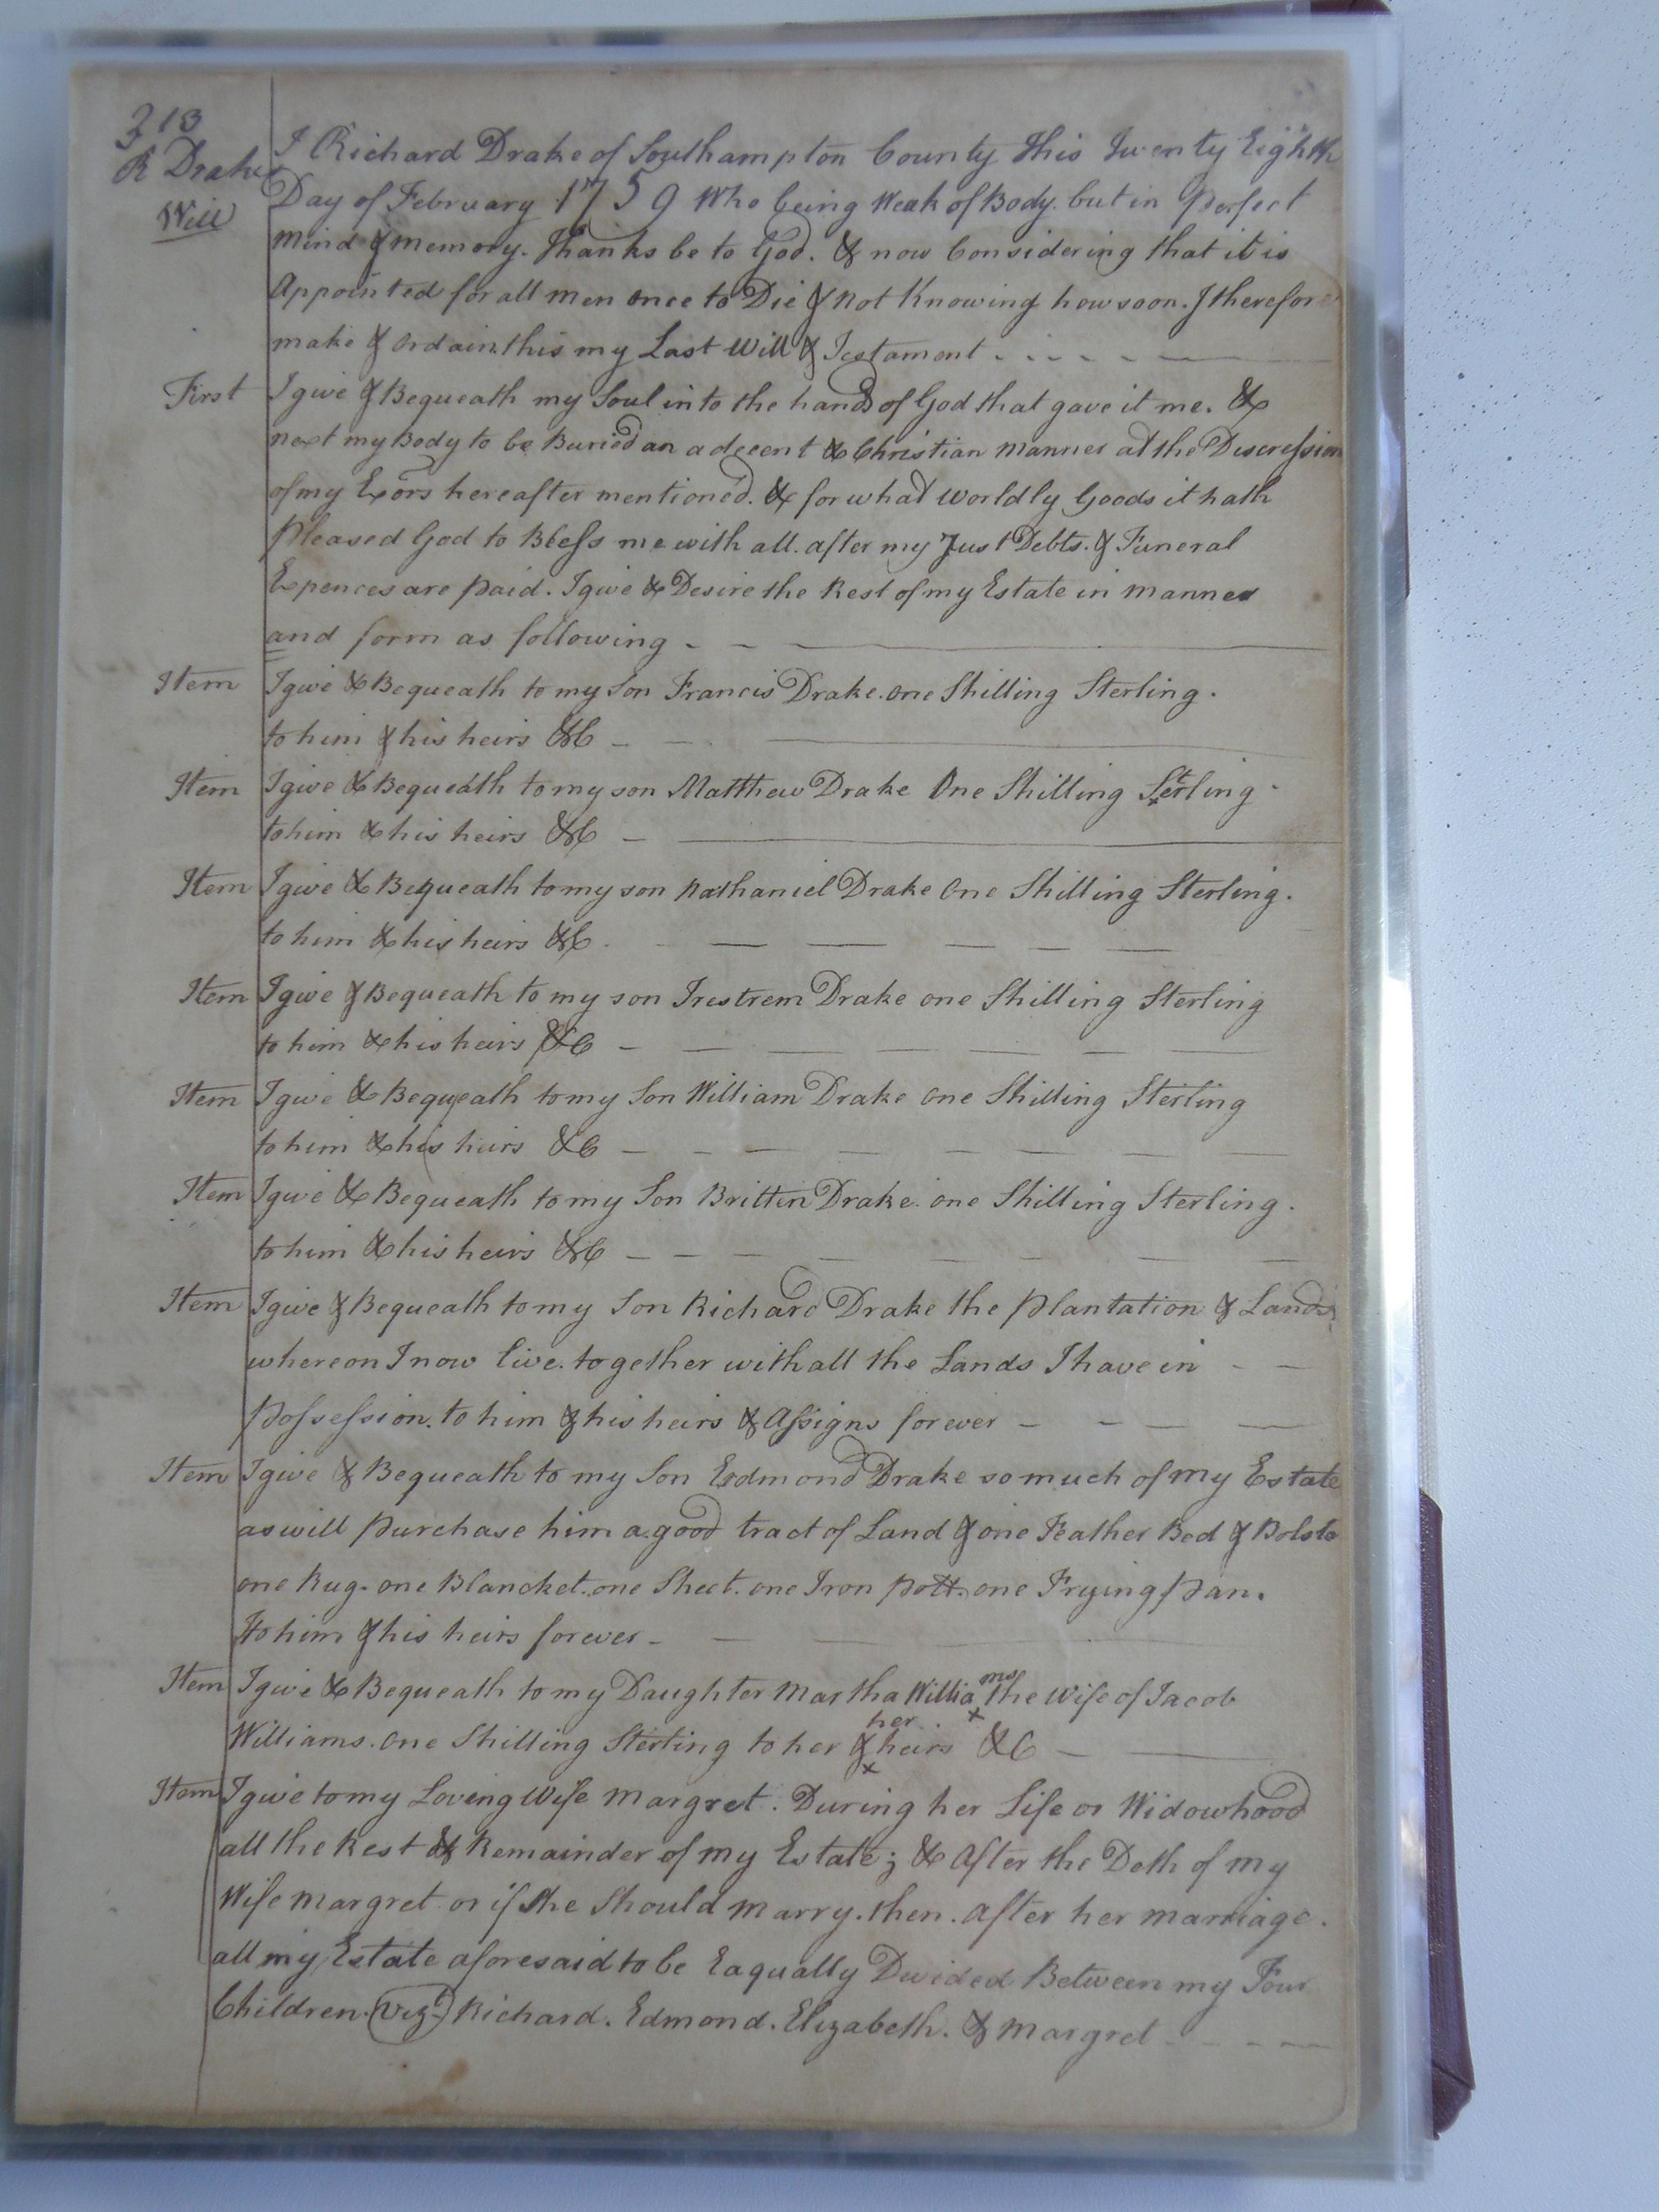 313
R Drakes
Will
I Richard Drake of Southampton County this Twenty Eighth
Day of February 1759 Who being Weak of Body. but in Perfect
mind & memory. Thanks be to God. & now Considering that it is
Appointed for all men once to Die & not Knowing how soon. I therefore
make & ordain this my Last Will & Testament
First I give & Bequeath my Soul into the hands of God that gave it me. &
next my Body to be Buried an a decent & Christian manner at the Discression
of my Exors hereafter mentioned. & for what worldly Goods it hath
Pleased God to Bless me with all. after my Just Debts. & Funeral
Expences are paid. I give & Desire the Rest of my Estate in manner
and form as following
Item I give & Bequeath to my Son Francis Drake. one Shilling Sterling.
to him & his heirs &C
Item I give & Bequeath to my son Matthew Drake One Shilling Sterling
to him & his heirs &C
Item I give & Bequeath to my son Nathaniel Drake One Shilling Sterling.
to him & his heirs &C
Item I give & Bequeath to my son Trestrem Drake one Shilling Sterling
to him & his heirs &C
Item I give & Bequeath to my Son William Drake one Shilling Sterling
to him & his heirs &C
Item I give & Bequeath to my Son Brittin Drake. one Shilling Sterling.
to him & his heirs &C
Item I give & Bequeath to my Son Richard Drake the Plantation & Lands
whereon I now live. together with all the Lands I have in
Possession. to him & his heirs & Assigns forever
Item I give & Bequeath to my Son Edmond Drake so much of my Estate
as will Purchase him a good tract of Land & one Feather Bed & Bolste
one Rug. one Blancket. one Sheet. one Iron Pott. one Frying Pan.
to him & his heirs forever
Item I give & Bequeath to my Daughter Martha Williams the Wife of Jacob
Williams. One Shilling Sterling to her & her heirs &C
Item I give to my Loving Wife Margret. During her Life or Widowhood
all the Rest & Remainder of my Estate; & After the Deth of my
Wife Margret or if She Should Marry. then. After her Marriage.
all my Estate aforesaid to be Eaqually Devided Between my Four
Children. (Vizt) Richard. Edmond. Elizabeth. & Margret